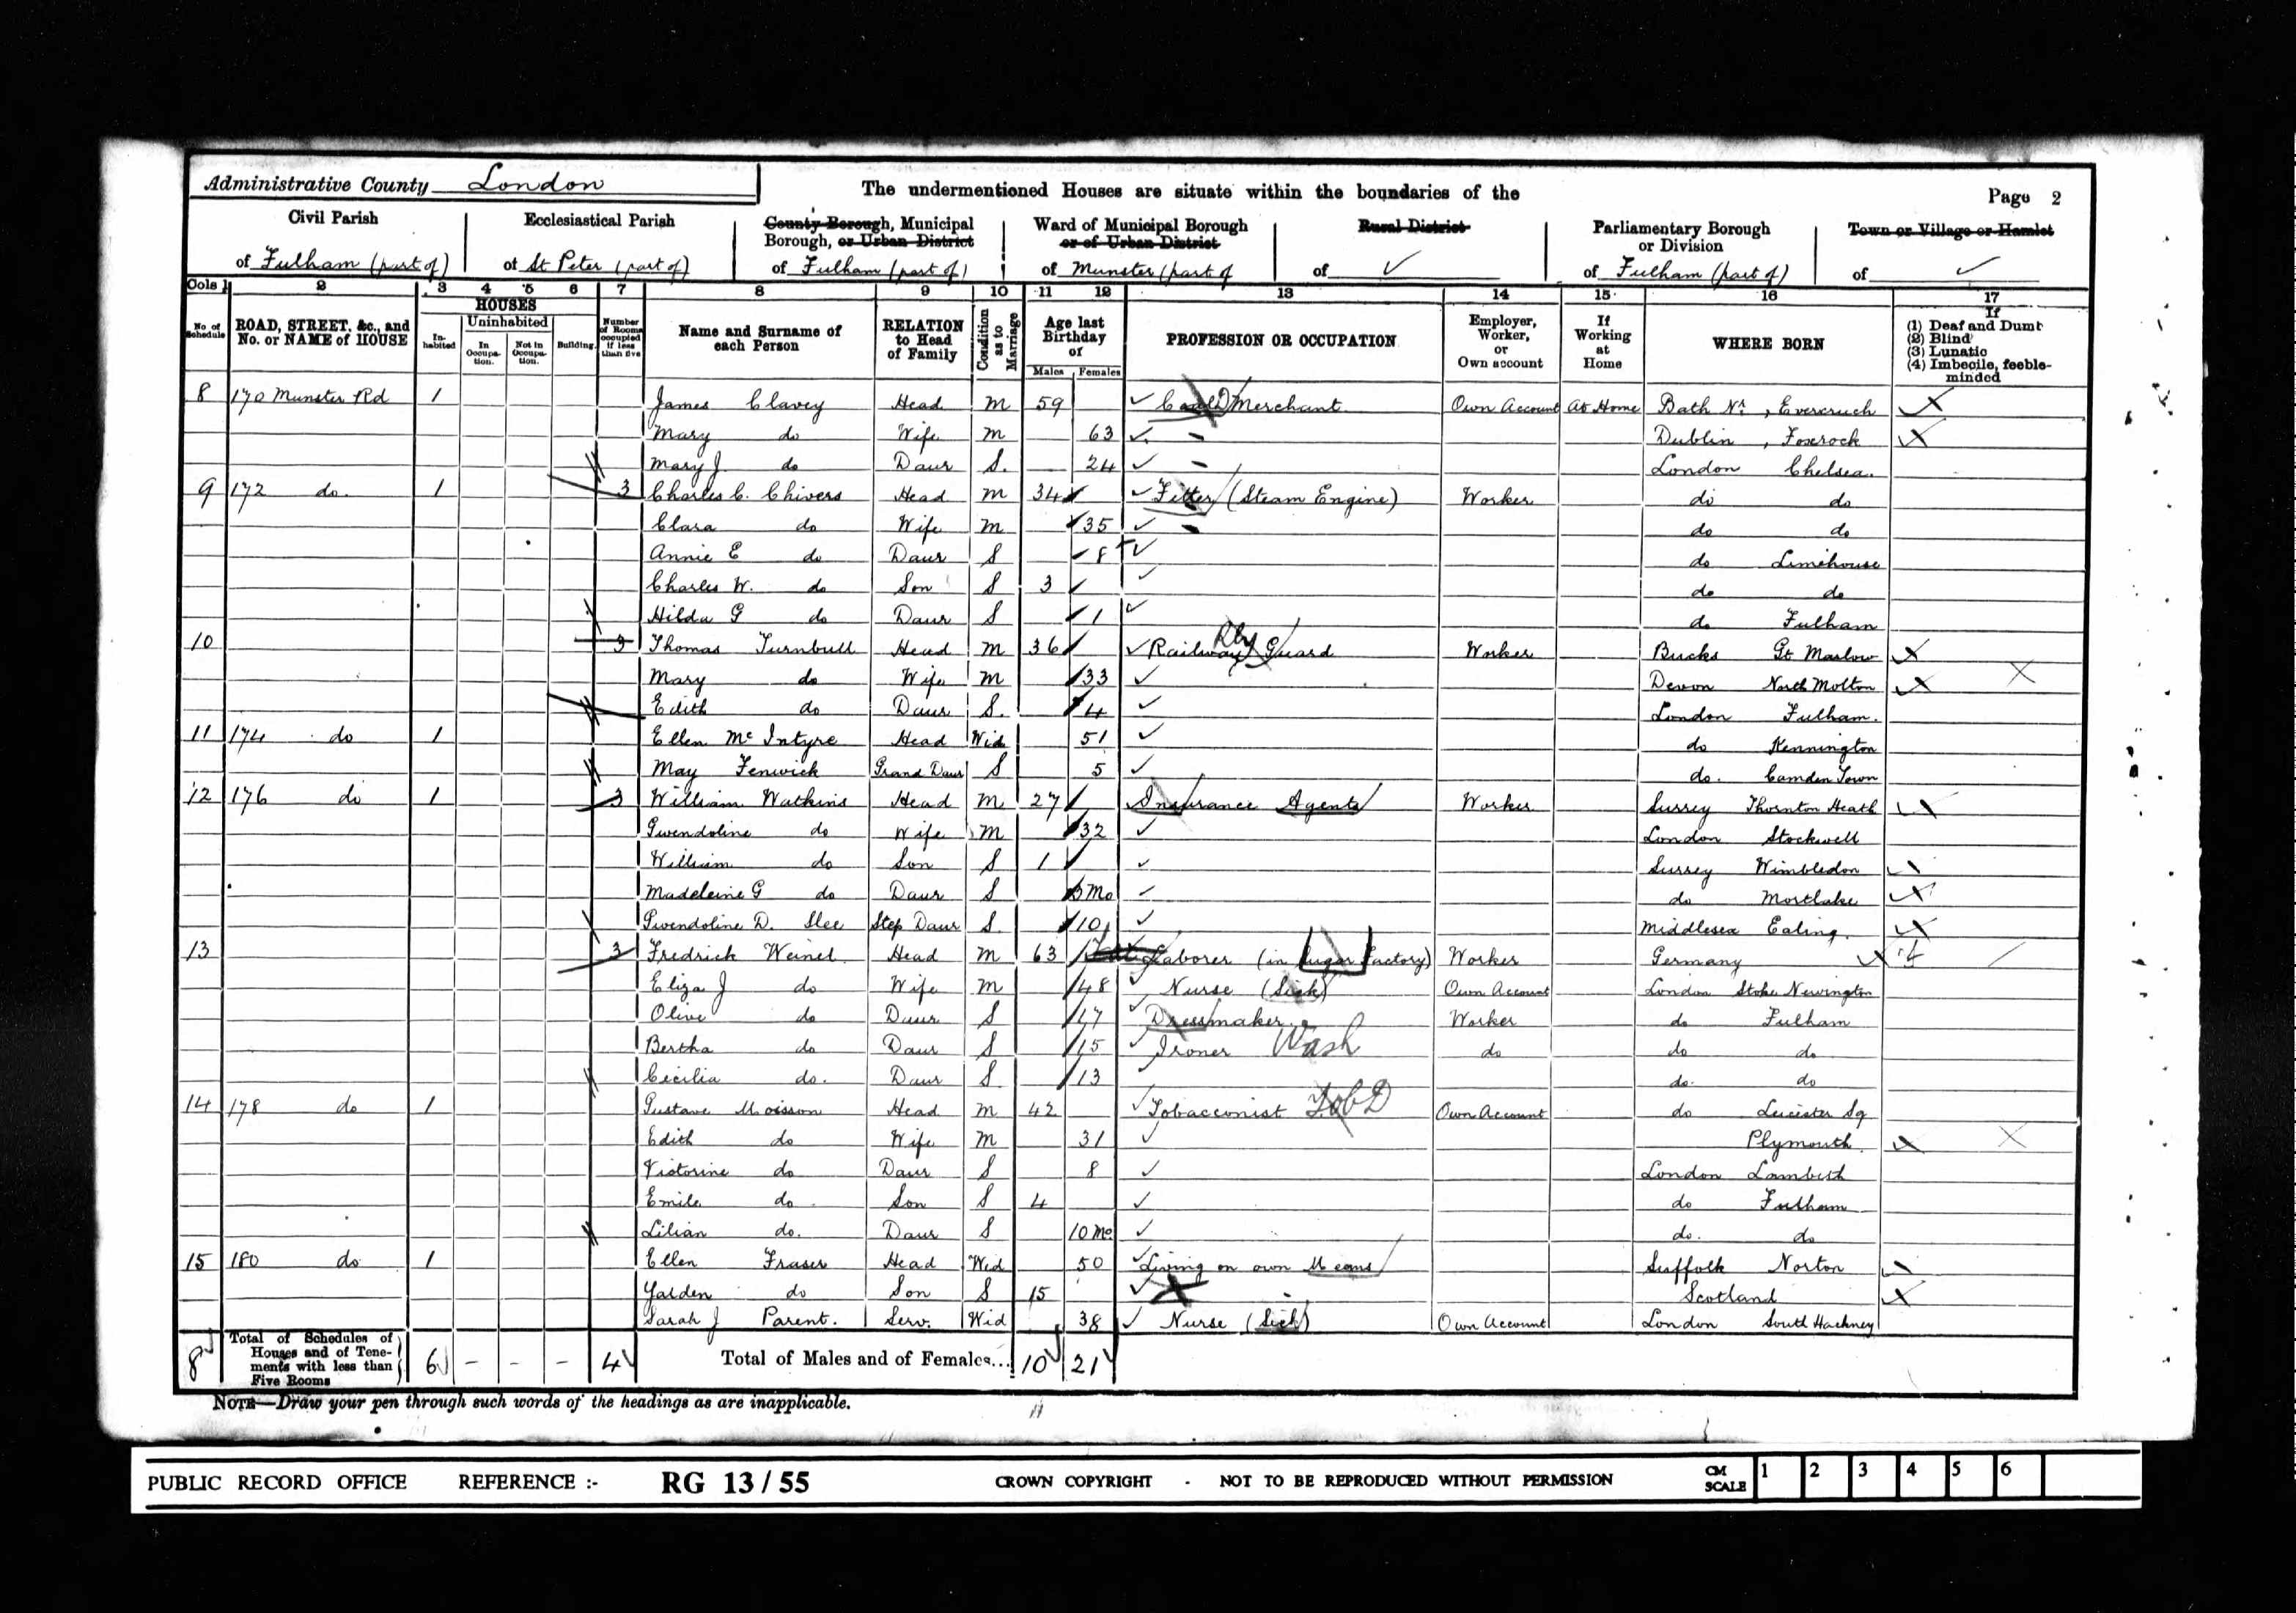 Administrative County London
The undermentioned Houses are situate within the boundaries of the
Page 2
Civil Parish
of Fulham (part of)
Ecclesiastical Parish
of St Peter (part of)
County Borough, Municipal
Borough, or Urban District
of Fulham (part of)
Ward of Municipal Borough
or of Urban District
of Munster (part of
Rural District
of
Parliamentary Borough
or Division
of Fulham (part of)
Town or Village or Hamlet
of
Cols 1 2 3 4 5 6 7 8 9 10 11 12 13 14 15 16 17
No of Schedule
ROAD, STREET, &c., and
No. or NAME of HOUSE
HOUSES
In-habited
Uninhabited
In Occupa-tion.
Not in Occupa-tion.
Building.
Number of Rooms occupied if less than five
Name and Surname of
each Person
RELATION
to Head
of Family
Condition as to Marriage
Age last
Birthday
of
Males Females
PROFESSION OR OCCUPATION
Employer,
Worker,
or
Own account
If
Working
at
Home
WHERE BORN
If
(1) Deaf and Dumb
(2) Blind
(3) Lunatic
(4) Imbecile, feeble-
minded
8 170 Munster Rd 1 James Clavey Head M 59 Coal Merchant Own Account At Home Bath Nr, Evercruch
Mary do Wife M 63 - Dublin, Foxrock
Mary J. do Daur S. 24 - London Chelsea.
9 172 do. 1 3 Charles C. Chivers Head M 34 Fitter (Steam Engine) Worker do do
Clara do Wife M 35 - do do
Annie E do Daur S 8 do Limehouse
Charles W. do Son S 3 do do
Hilda G do Daur S 1 do Fulham
10 3 Thomas Turnbull Head M 36 Railway Rly Guard Worker Bucks Gt Marlow
Mary do Wife M 33 Devon North Molton
Edith do Daur S. 4 London Fulham.
11 174 do 1 Ellen Mc Intyre Head Wid 51 do Kennington
May Fenwick Grand Daur S 5 do. Camden Town
12 176 do 1 3 William Watkins Head M 27 Insurance Agent Worker Surrey Thornton Heath
Gwendoline do Wife M 32 London Stockwell
William do Son S 1 Surrey Wimbledon
Madeleine G do Daur S Mo do Mortlake
Gwendoline D. Slee Step Daur S. 10 Middlesex Ealing.
13 3 Fredrick Weinel Head M 63 Laborer (in Sugar Factory) Worker Germany
Eliza J do Wife M 48 Nurse (Sick) Own Account London Stoke Newington
Olive do Daur S 17 Dressmaker. Worker do Fulham
Bertha do Daur S 15 Ironer Wash do do do
Cecilia do. Daur S. 13 do. do
14 178 do 1 Gustave Moisson Head M 42 Tobacconist Tob D Own Account do Leicester Sq
Edith do Wife M 31 Plymouth.
Victorine do Daur S 8 London Lambeth
Emile do Son S 4 do Fulham
Lilian do. Daur S 10 Mo do. do
15 180 do 1 Ellen Fraser Head Wid 50 Living on own Means Suffolk Norton
Yalden do Son S 15 Scotland
Sarah J Parent. Serv. Wid 38 Nurse (Sick) Own Account London South Hackney
8 Total of Schedules of
Houses and of Tene-
ments with less than
Five Rooms
6 - - - 4 Total of Males and of Females... 10 21
NOTE—Draw your pen through such words of the headings as are inapplicable.
PUBLIC RECORD OFFICE REFERENCE :- RG 13/55 CROWN COPYRIGHT - NOT TO BE REPRODUCED WITHOUT PERMISSION CM SCALE 1 2 3 4 5 6